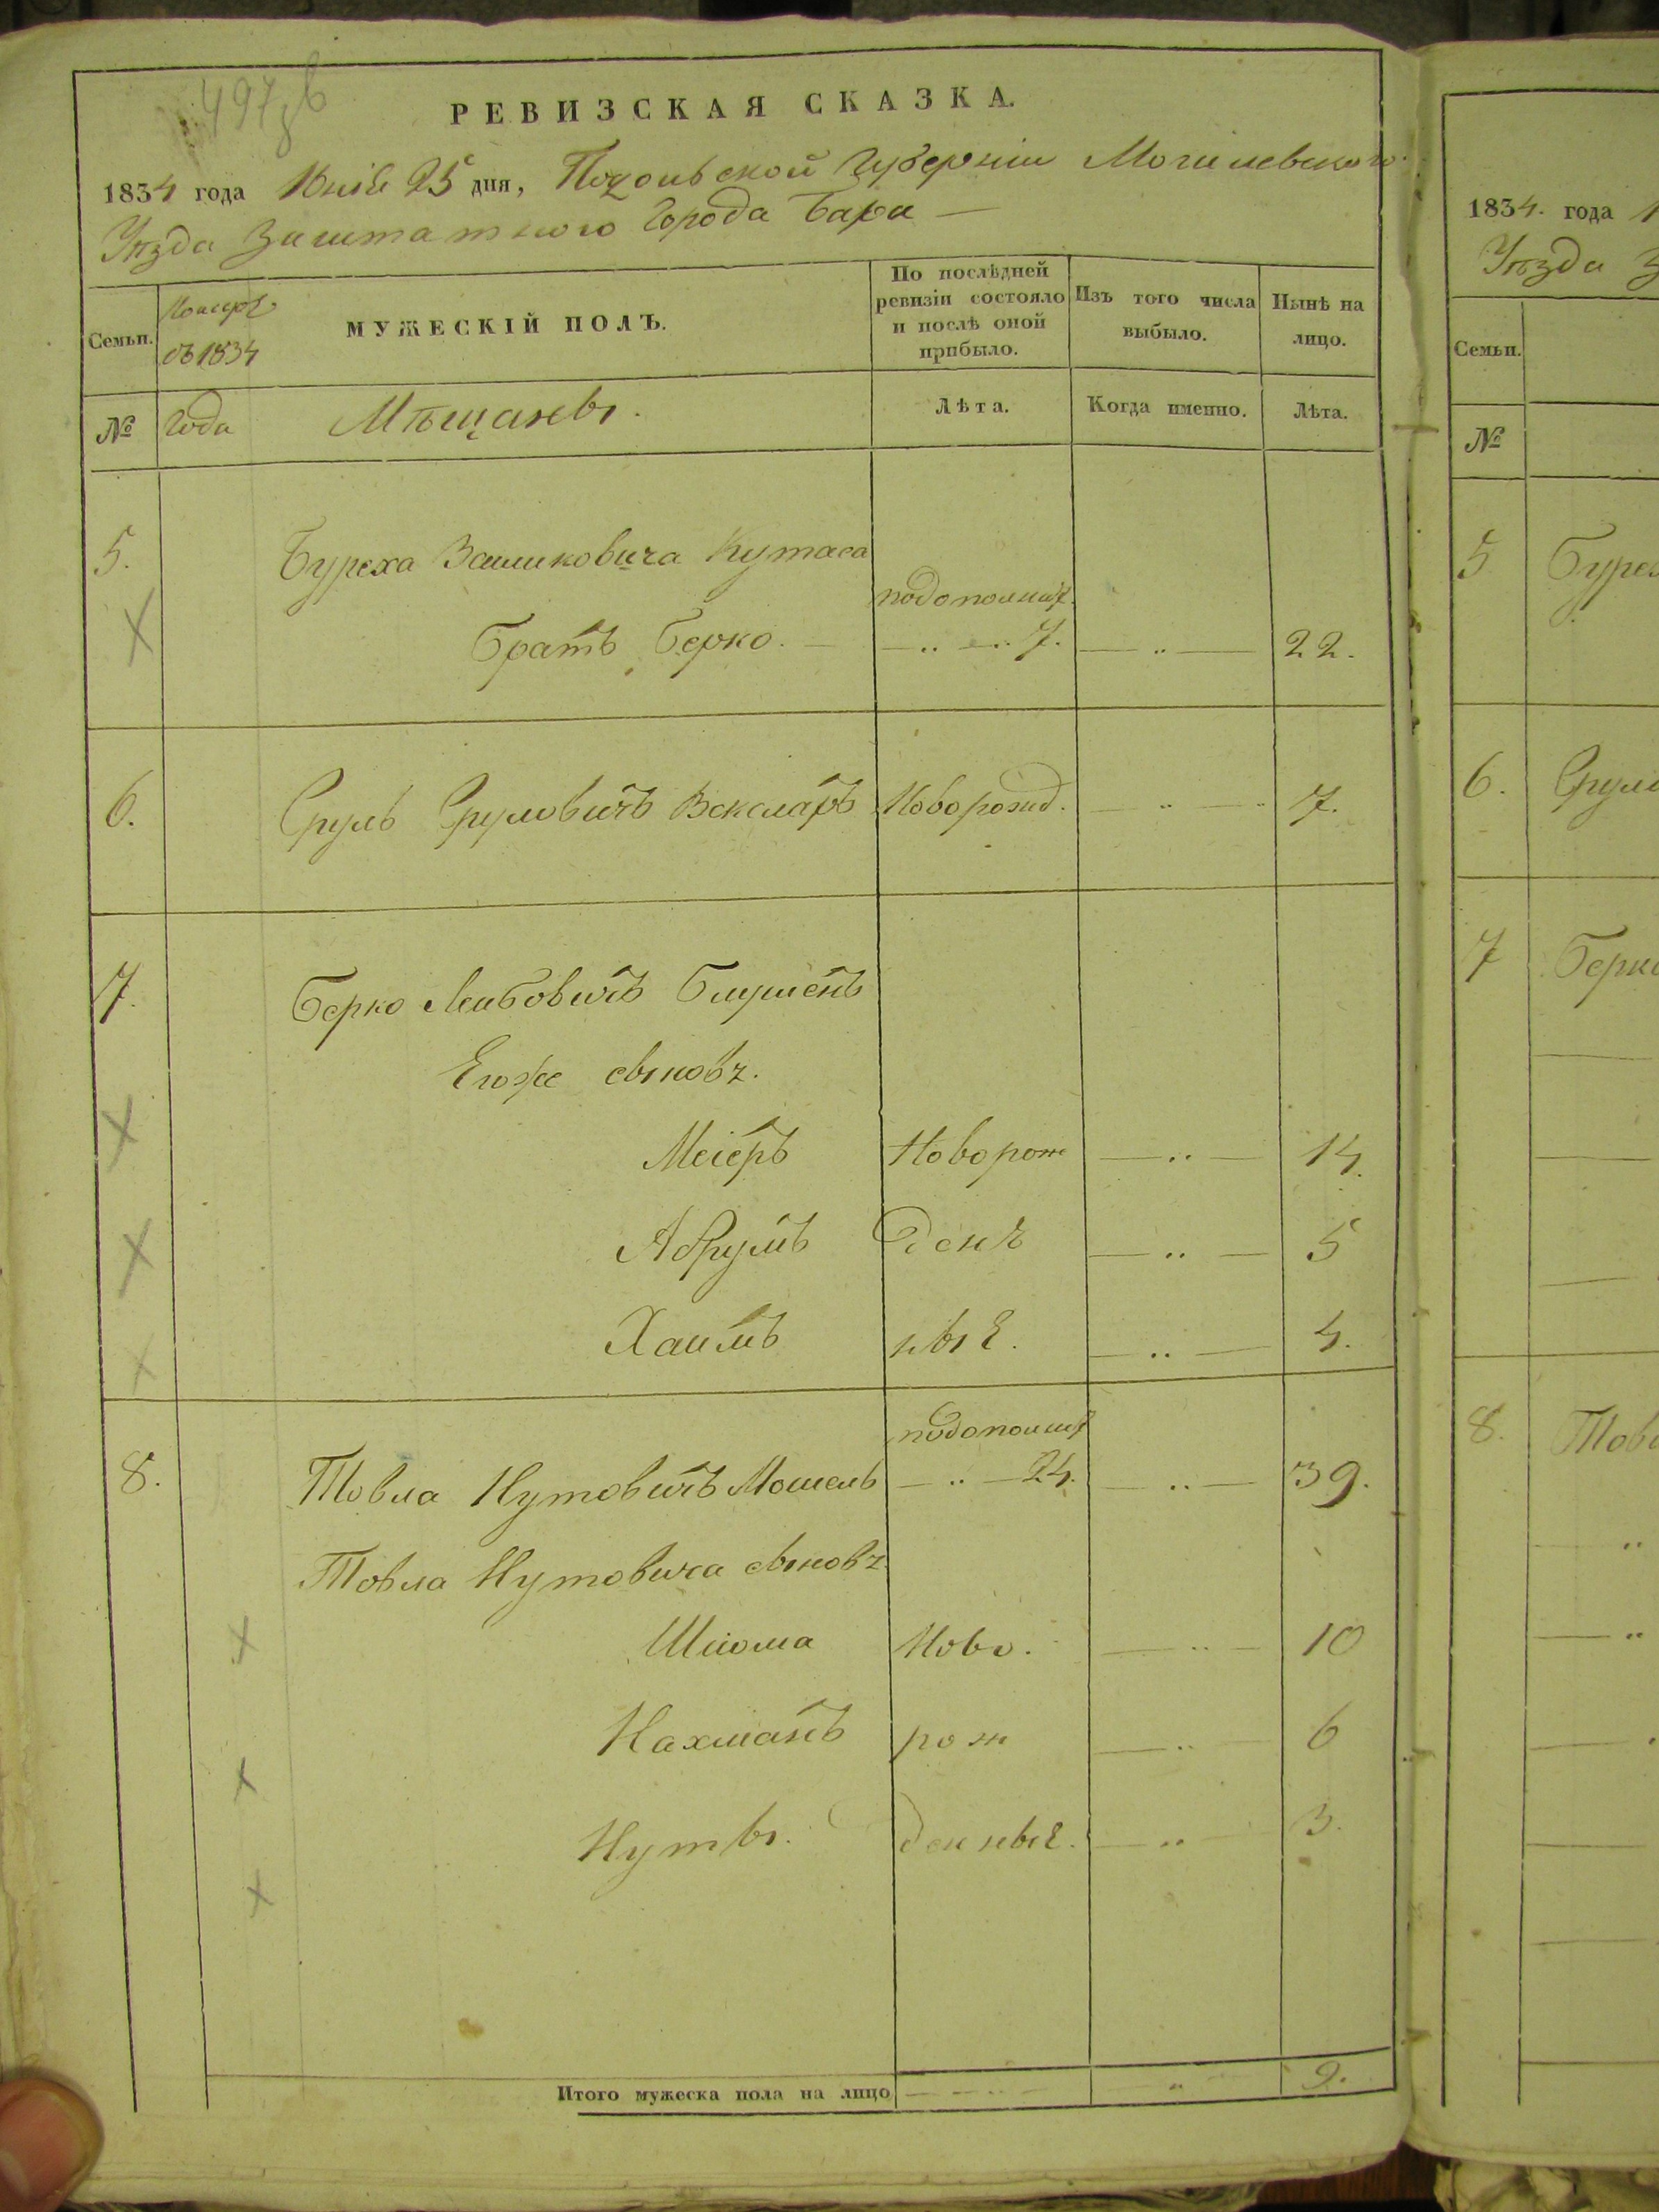 497 зв
РЕВИЗСКАЯ СКАЗКА.
1834 года Июля 25 дня, Подольской Губерніи Могилевского
Уѣзда Заштатного Города Бара —
Семьи.
Номеръ
съ 1834
года
МУЖЕСКІЙ ПОЛЪ.
По послѣдней
ревизіи состояло
и послѣ оной
прибыло.
Изъ того числа
выбыло.
Нынѣ на
лицо.
№
Мѣщане
Лѣта.
Когда именно.
Лѣта.
5.
Буреха Зашлковича Кутаса
Братъ Берко. —
7.
22.
6.
Сруль Сруловичъ Векслѧръ
Новорожд.
7.
7.
Берко Лейбовичъ
Егоже сыновъ.
Меіеръ Новорож 14.
Абрумъ денъ 5
Хаимъ ные. 4.
8.
Товла Нутовичъ 24. 39.
Товла Нутовича сыновъ
Шлома Ново. 10
Нахманъ рож 6
Нуты. денные. 3.
Итого мужеска пола на лицо 9.
1834. года
Уѣзда З
Семьи.
№
5 Буре
6. Срул
7 Берк
8. Това